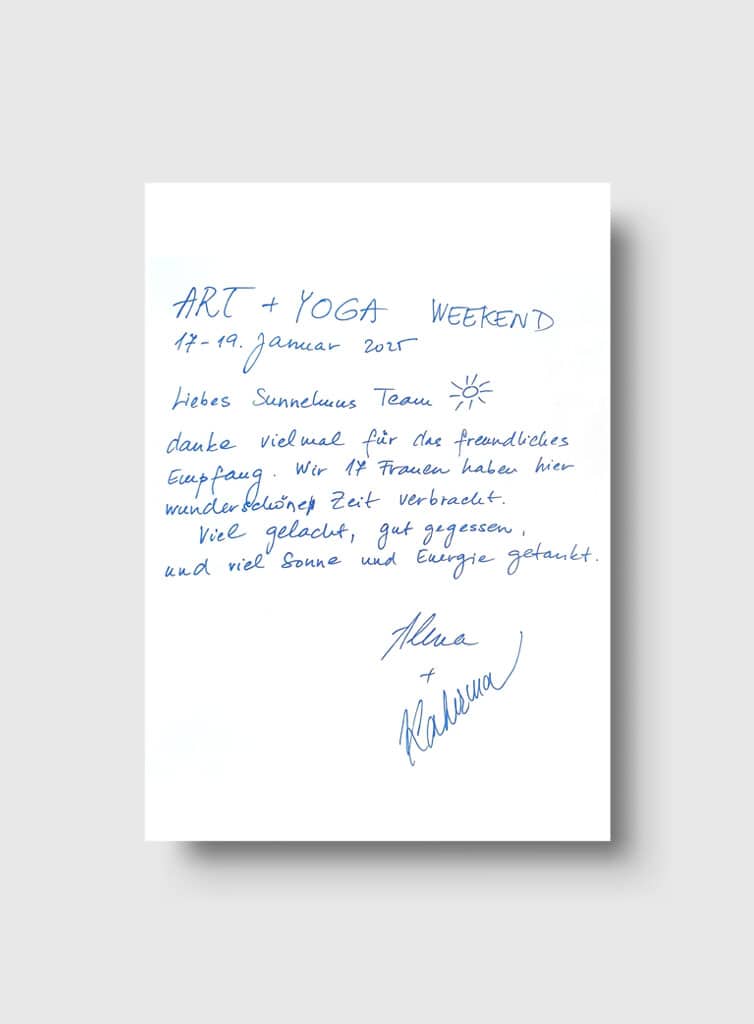 ART + YOGA WEEKEND
17-19. Januar 2025
Liebes Sunnehus Team
danke vielmal für das freundliches
Empfang. Wir 17 Frauen haben hier
wunderschöne Zeit verbracht.
Viel gelacht, gut gegessen,
und viel Sonne und Energie getankt.
Alena
+